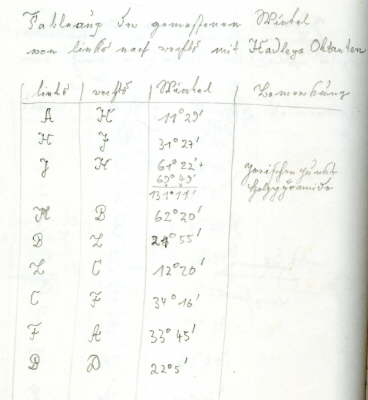 Tabelle der gemessenen Winkel
von links nach rechts mit Hadleys Oktanten
links rechts Winkel Bemerkung
A H 11°29'
H J 31°27'
J K 61°22'+
69°49'
131°11'
M B 62°20'
B L 24°55'
L C 12°20'
C F 34°16'
F A 33°45'
B D 22°5'